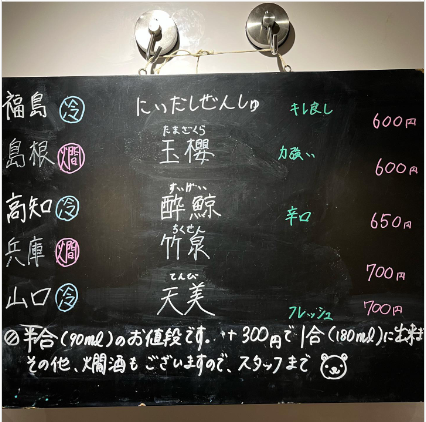 福島 冷 にいだしぜんしゅ キレ良し 600円
たまざくら
島根 燗 玉櫻 力強い 600円
すいげい
高知 冷 酔鯨 辛口 650円
ちくせん
兵庫 燗 竹泉 700円
てんび
山口 冷 天美 フレッシュ 700円
半合(90ml)のお値段です。 ++300円で1合(180ml)に出来ま
その他、燗酒もございますので、スタッフまで